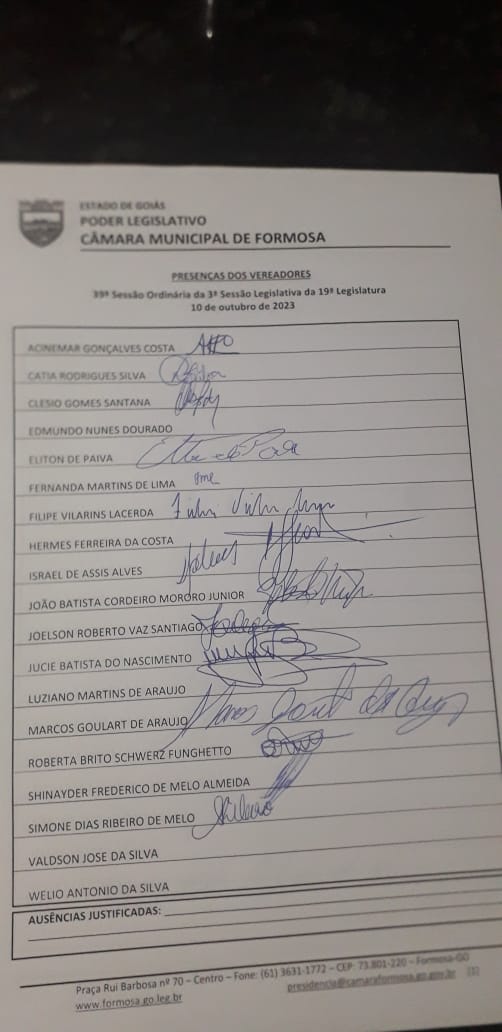 ESTADO DE GOIÁS
PODER LEGISLATIVO
CÂMARA MUNICIPAL DE FORMOSA
PRESENÇAS DOS VEREADORES
39ª Sessão Ordinária da 3ª Sessão Legislativa da 19ª Legislatura
10 de outubro de 2023
ACINEMAR GONÇALVES COSTA
CATIA RODRIGUES SILVA
CLESIO GOMES SANTANA
EDMUNDO NUNES DOURADO
ELITON DE PAIVA
FERNANDA MARTINS DE LIMA
FILIPE VILARINS LACERDA
HERMES FERREIRA DA COSTA
ISRAEL DE ASSIS ALVES
JOÃO BATISTA CORDEIRO MORORO JUNIOR
JOELSON ROBERTO VAZ SANTIAGO
JUCIE BATISTA DO NASCIMENTO
LUZIANO MARTINS DE ARAUJO
MARCOS GOULART DE ARAUJO
ROBERTA BRITO SCHWERZ FUNGHETTO
SHINAYDER FREDERICO DE MELO ALMEIDA
SIMONE DIAS RIBEIRO DE MELO
VALDSON JOSE DA SILVA
WELIO ANTONIO DA SILVA
AUSÊNCIAS JUSTIFICADAS:
Praça Rui Barbosa nº 70 – Centro – Fone: (61) 3631-1772 – CEP: 73.801-220 – Formosa-GO
www.formosa.go.leg.br presidencia@camaraformosa.go.gov.br [1]